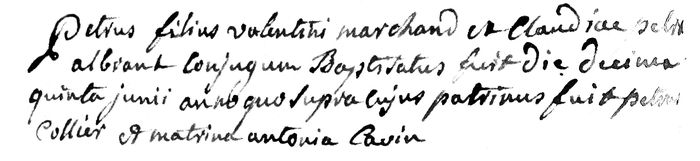 Petrus filius valentini marchand et Claudiae petri
albrant Conjugum Baptisatus fuit die decima
quinta junii anno quo supra Cujus patrinus fuit petrus
Collier et matrina antonia Cavin